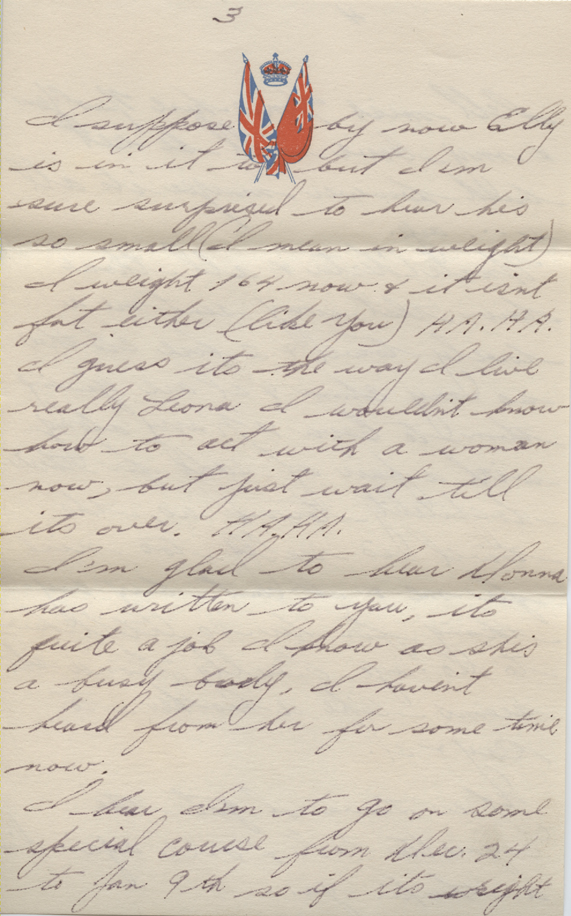 3
I suppose by now Elly
is in it to but I'm
sure surprised to hear his
so small (I mean in weight)
I weight 164 now & it isnt
fat either (like you) HA. HA.
I guess its the way I live
really Leona I wouldn't know
how to act with a woman
now, but just wait till
its over. HA. HA.
I'm glad to hear Donna
has written to you, its
quite a job I know as shes
a busy body, I havent
heard from her for some time
now.
I hear I'm to go on some
special course from Dec. 24
to Jan 9th so if its weight